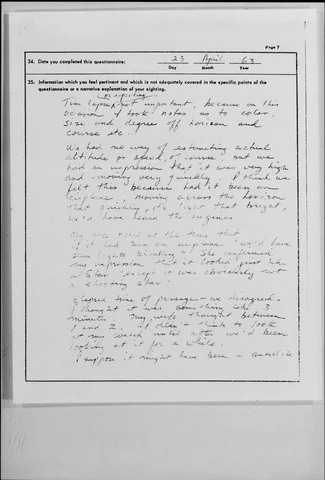 Page 7
34. Date you completed this questionnaire: 23 April 63
Day Month Year
35. Information which you feel pertinent and which is not adequately covered in the specific points of the
questionnaire or a narrative explanation of your sighting.
(on reporting)
Time lapse not important, because on this
occasion I took notes as to color,
size and degree off horizon and
course etc.
We had no way of estimating actual
altitude or speed, of course, but we
had an impression that it was very high
and moving very quickly. I think we
felt this because had it been an
airplane, moving across the horizon
that quickly, it's light that bright,
we'd have heard the engines
My wife noted at the time that
if it had been an airplane we'd have
seen lights blinking. She confirmed
my impression that it looked just like
a star except it was obviously not
a shooting star.
Elapsed time of passage - we disagreed.
I thought it was something like 3
minutes. My wife thought between
1 and 2. I didn't think to look
at my watch until after we'd been
looking at it for a while.
I suppose it might have been a satellite